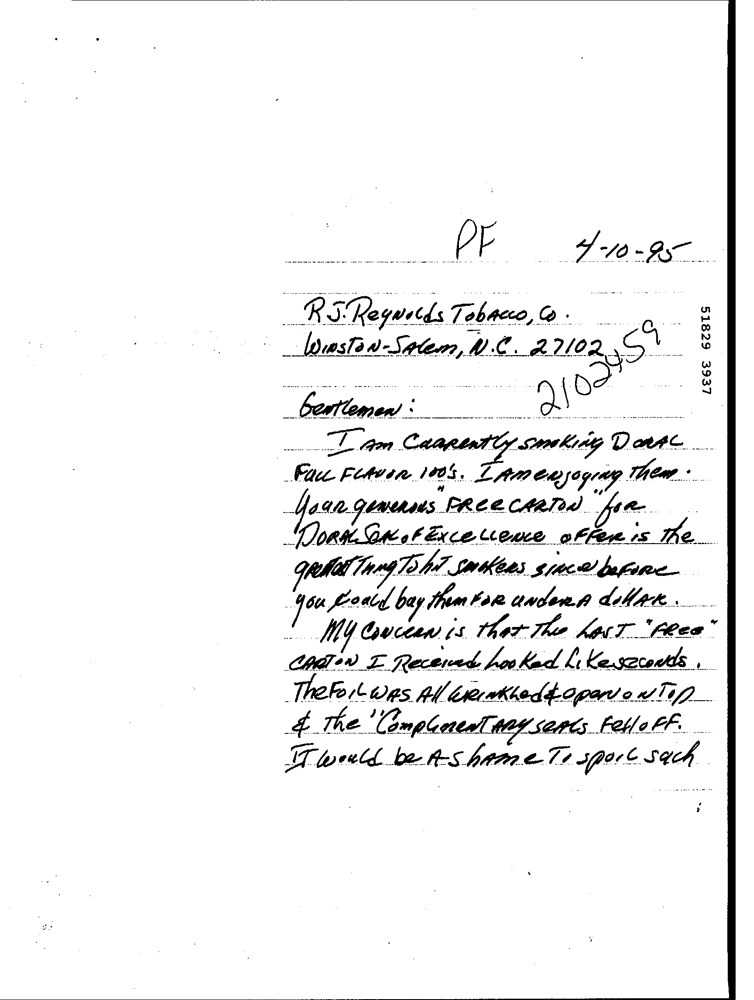 PF 4-10-95
R.J. Reynolds Tobacco, Co.
Winston-Salem, N.C. 27102
2102459
Gentlemen:
I am currently smoking Doral
Full Flavor 100's. I am enjoying them.
Your generous "FREE CARTON" for
Doral Seal of Excellence offer is the
greatest thing to hit smokers since before
you could buy them for under a dollar.
My concern is that the last "Free"
carton I received looked like seconds.
The foil was all wrinkled & open on top
& the "Complimentary seals fell off.
It would be a shame to spoil such
51829 3937